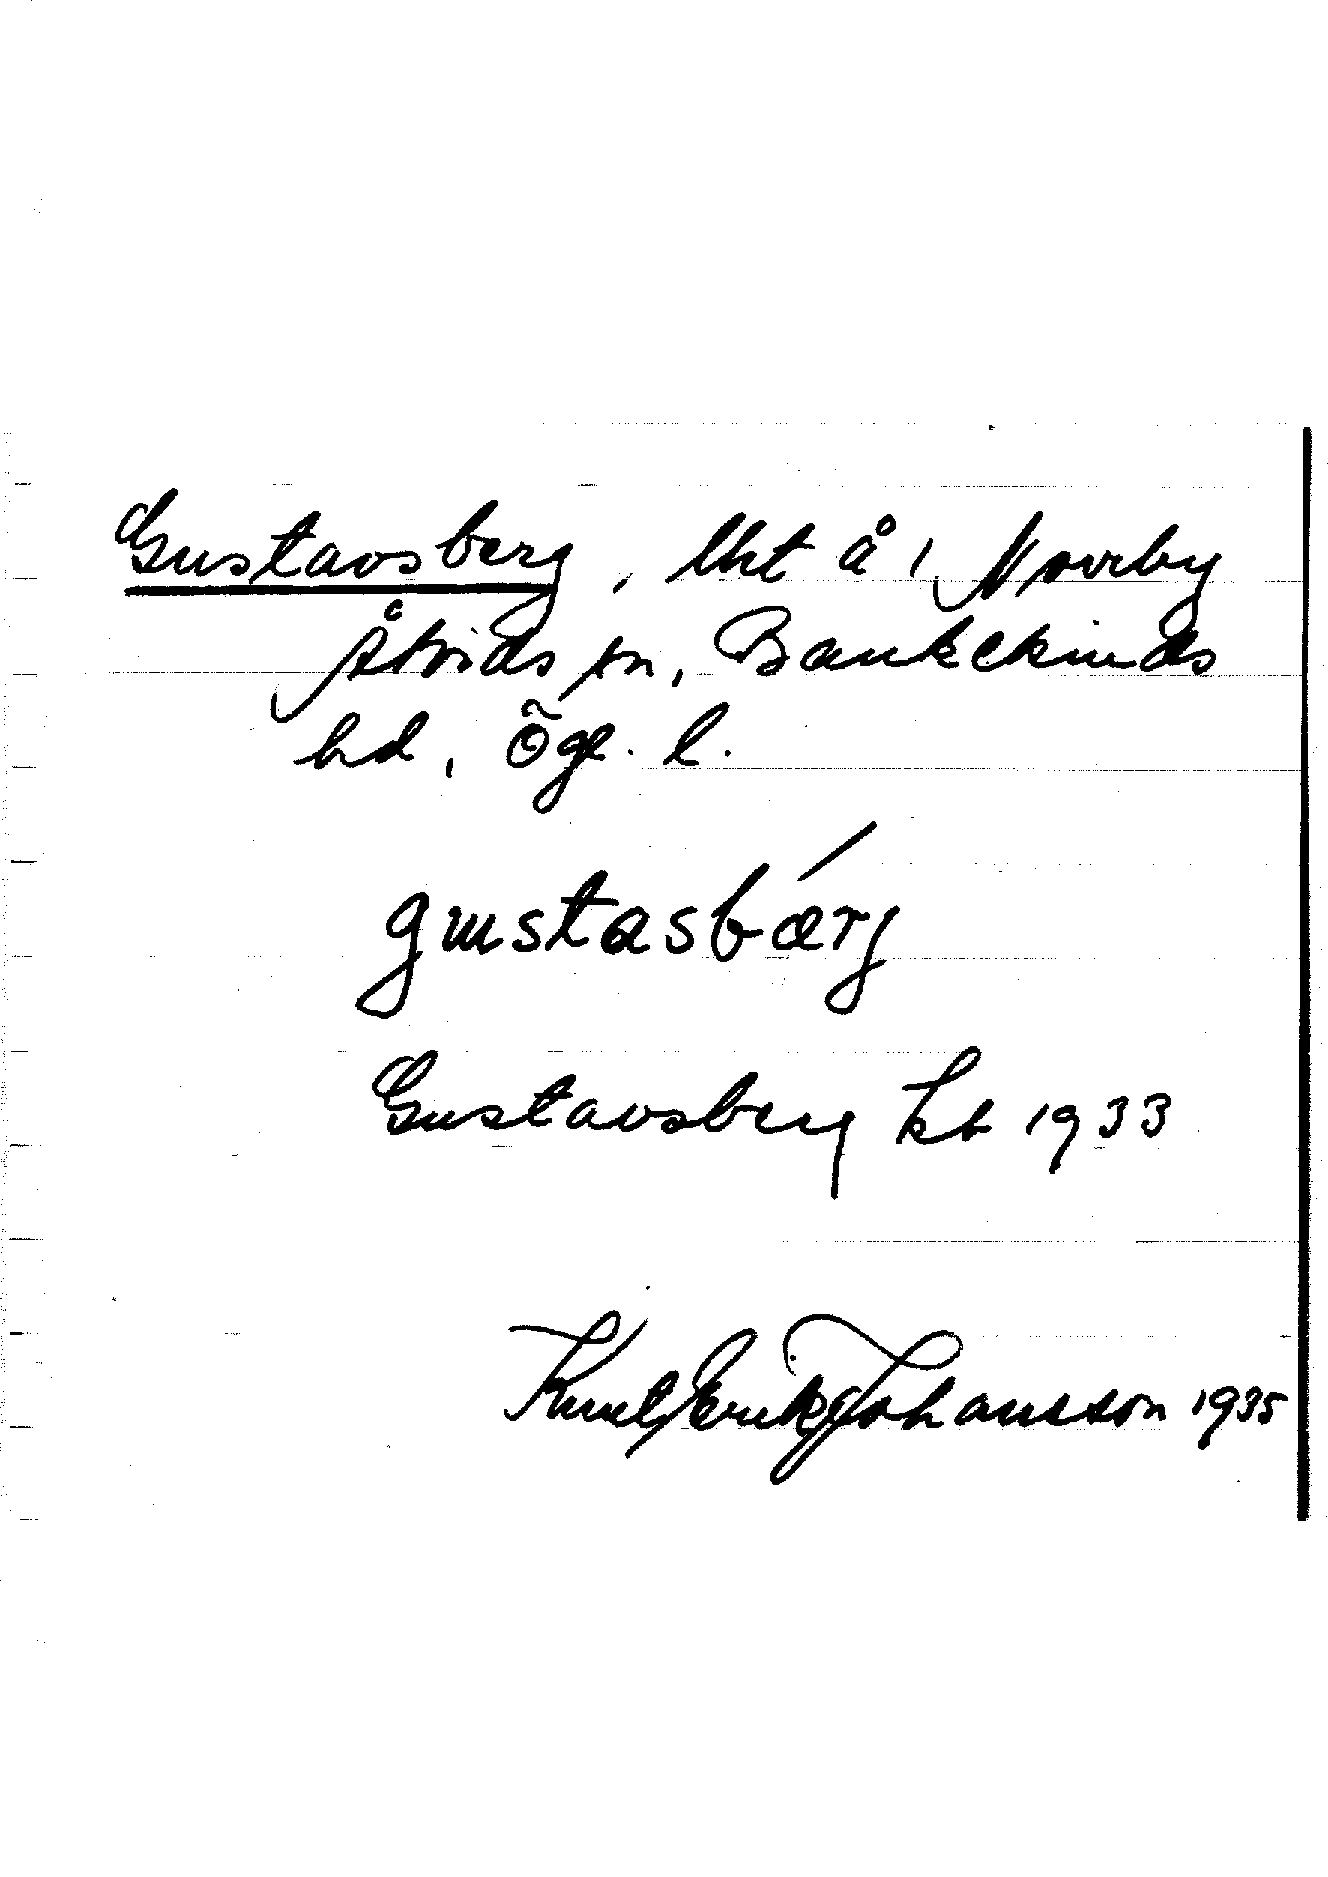 Gustavsberg, lht å 1 Norrby
Åtvids sn, Bankekinds
hd, Ögl. l.
gustasbærj
Gustavsberg kb 1933
Knut Erik Johansson 1935